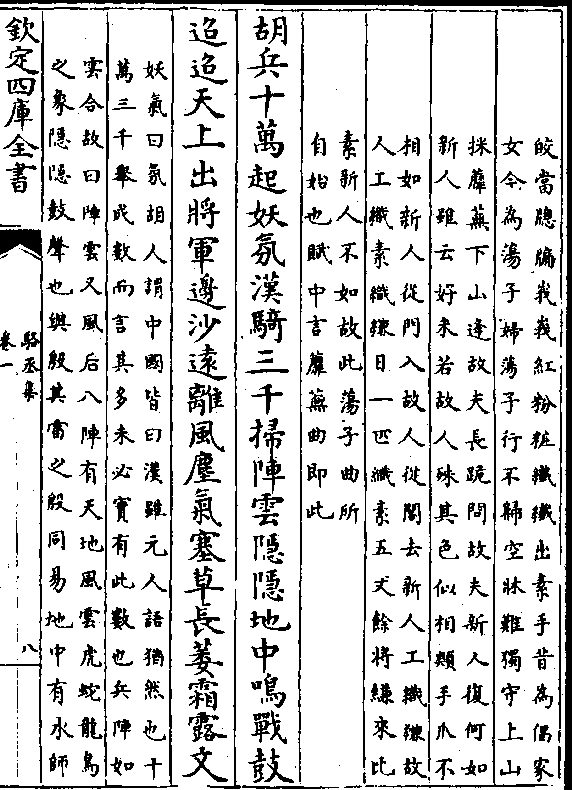 皎當牕牖峩峩紅粉粧纖纖出素手昔為倡家
女今為蕩子婦蕩子行不歸空牀難獨守上山
採蘼蕪下山逢故夫長跪問故夫新人復何如
新人雖云好未若故人姝其色似相類手爪不
相如新人從門入故人從閤去新人工織縑故
人工織素織縑日一匹織素五丈餘將縑來比
素新人不如故此蕩子曲所
自始也賦中言蘼蕪曲即此
胡兵十萬起妖氛漢騎三千掃陣雲隱隱地中鳴戰鼓
迢迢天上出將軍邊沙遠離風塵氣塞草長萎霜露文
妖氣曰氛胡人謂中國皆曰漢雖元人語猶然也十
萬三千舉成數而言其多未必實有此數也兵陣如
雲合故曰陣雲又風后八陣有天地風雲虎蛇龍鳥
之象隱隱鼓聲也與殷其雷之殷同易地中有水師
欽定四庫全書
駱丞集
卷一
八